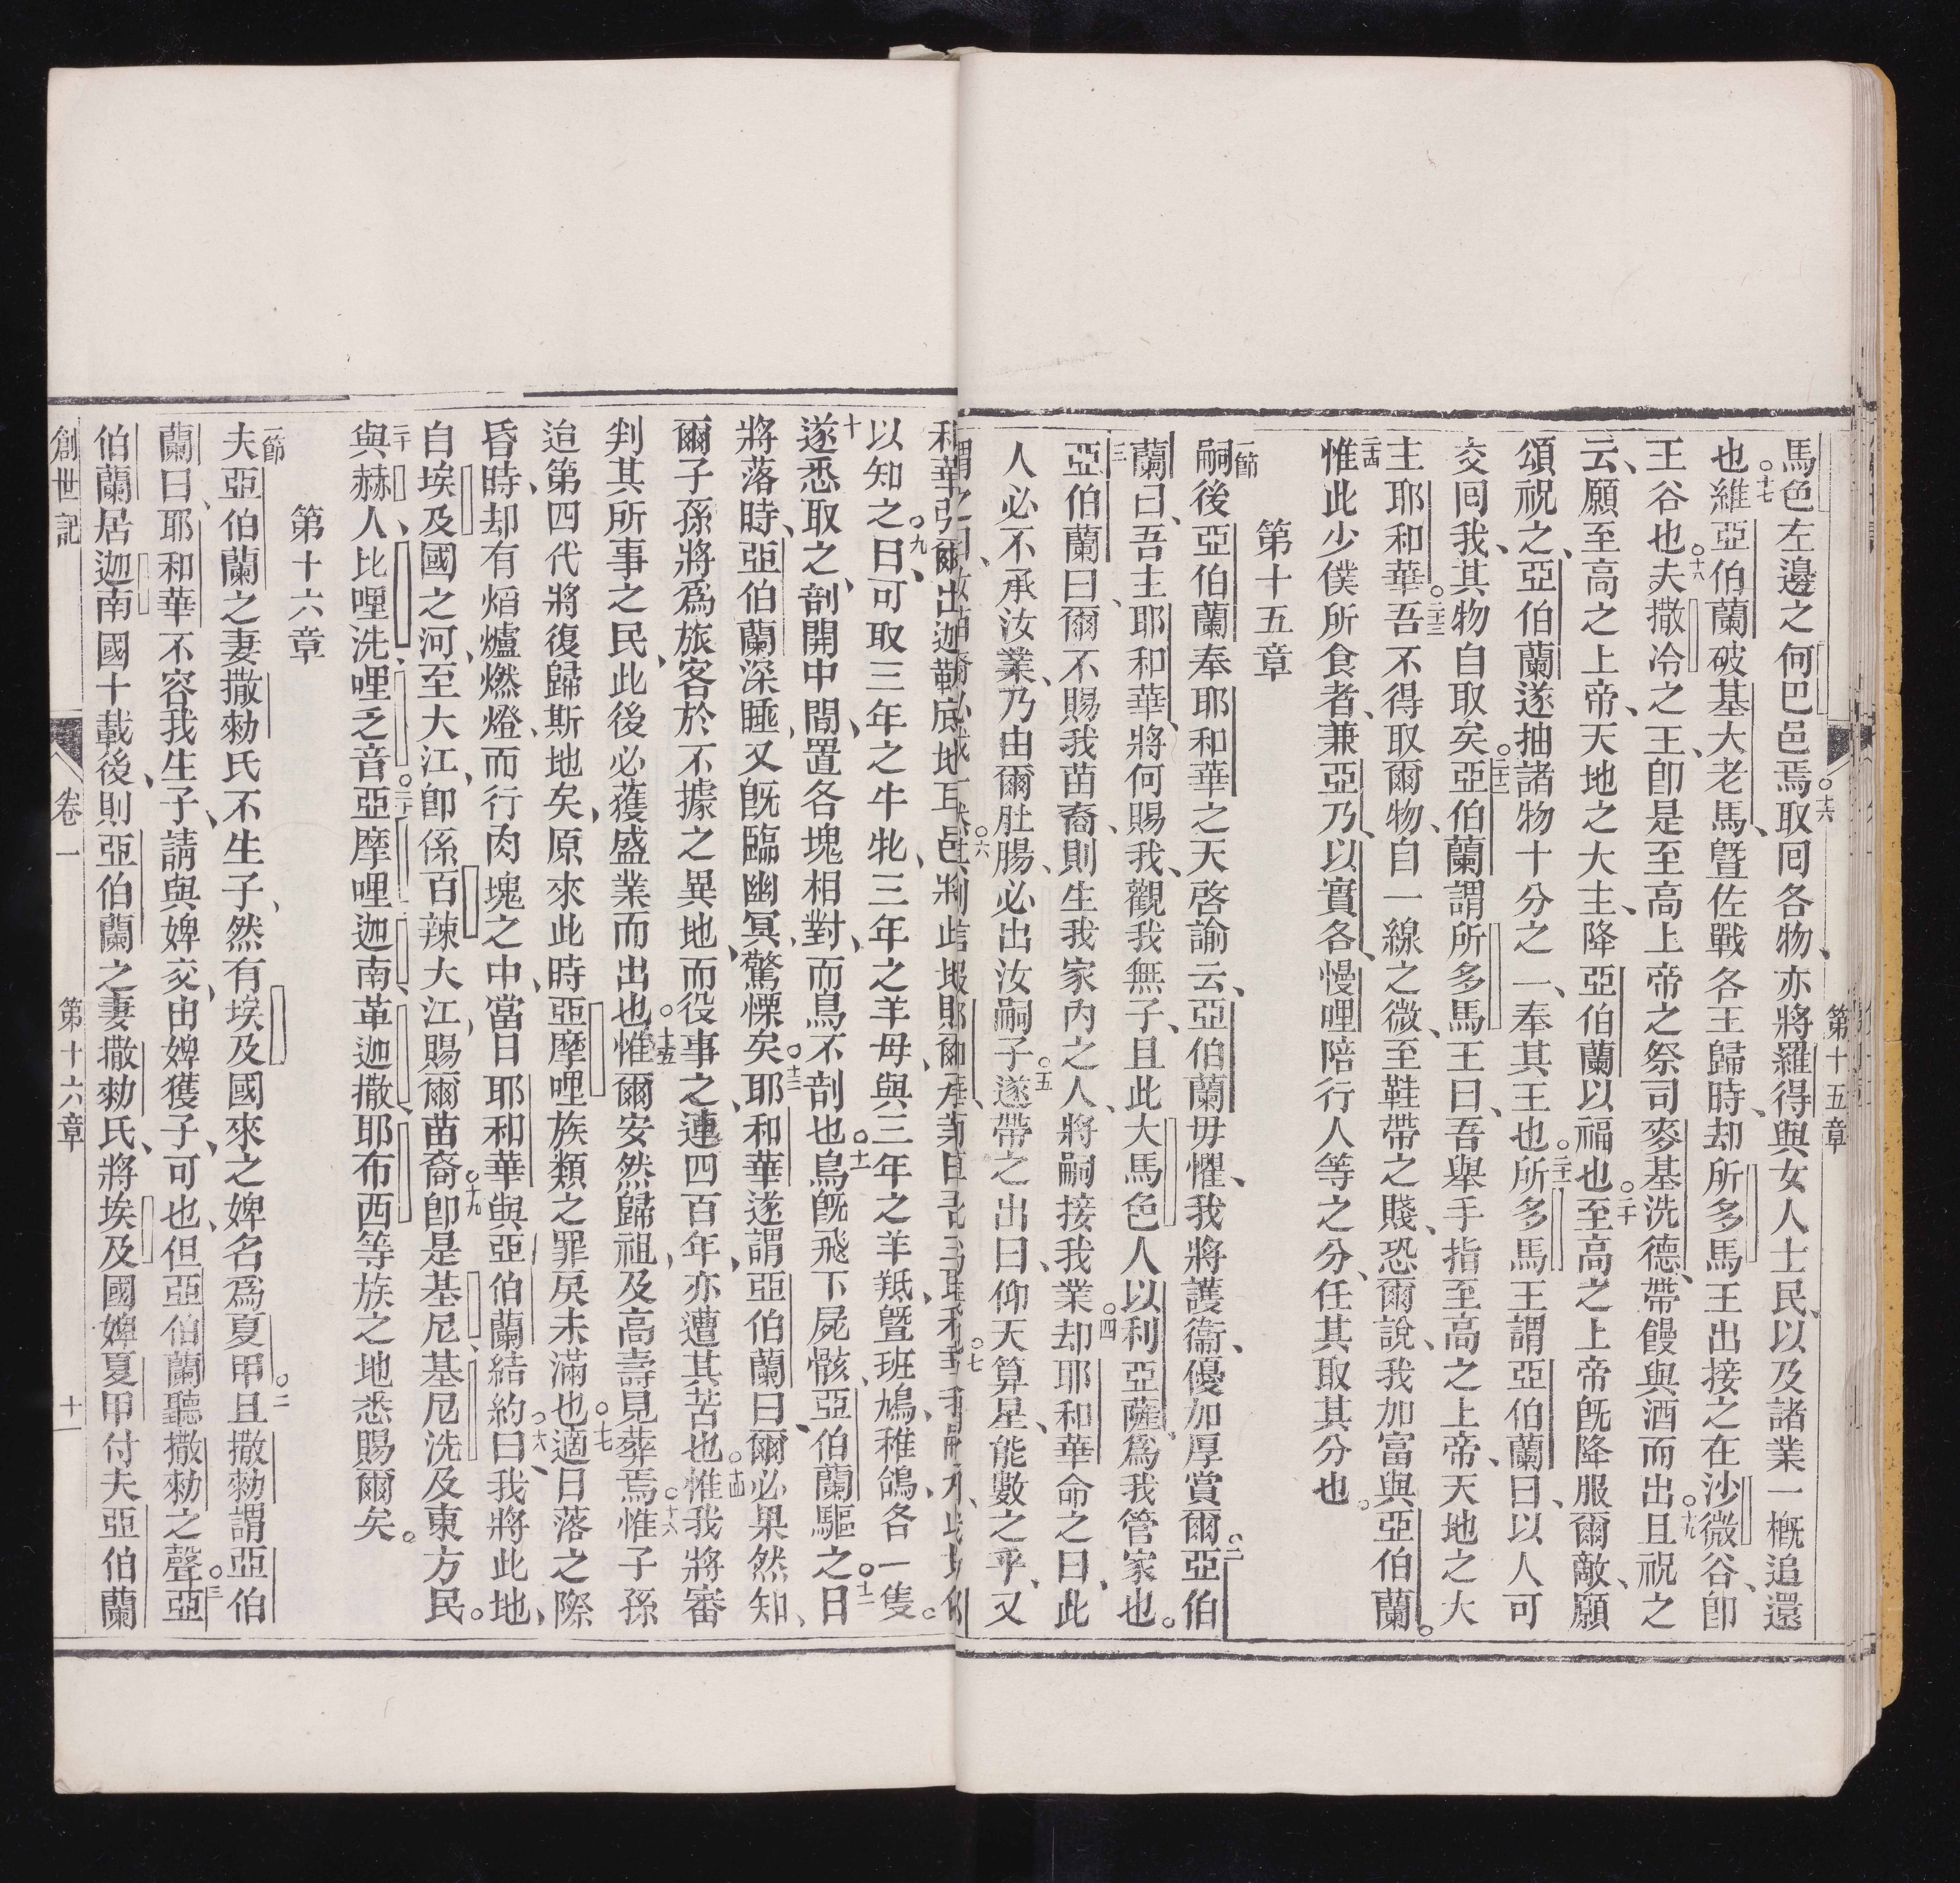 馬色左邊之何巴邑焉。十六取回各物、亦將羅得與女人士民、以及諸業一槪追還
也。十七維亞伯蘭破基大老馬、曁佐戰各王歸時、却所多馬王出接之在沙微谷、卽
王谷也。十八夫撒冷之王、卽是至高上帝之祭司麥基洗德、帶饅與酒而出。十九且祝之
云、願至高之上帝、天地之大主、降亞伯蘭以福也。二十至高之上帝旣降服爾敵、願
頌祝之、亞伯蘭遂抽諸物十分之一、奉其王也。二十一所多馬王謂亞伯蘭曰、以人可
交囘我、其物自取矣。二十二亞伯蘭謂所多馬王曰、吾舉手指至高之上帝、天地之大
主耶和華。二十三吾不得取爾物、自一線之微、至鞋帶之賤、恐爾說、我加富與亞伯蘭。
二十四惟此少僕所食者、兼亞乃、以實各、慢哩陪行人等之分、任其取其分也。
第十五章
一節嗣後亞伯蘭奉耶和華之天啓諭云、亞伯蘭毋懼、我將護衞、優加厚賞爾。二亞伯
蘭曰、吾主耶和華、將何賜我、觀我無子、且此大馬色人以利亞薩、爲我管家也。
三亞伯蘭曰、爾不賜我苗裔、則生我家內之人、將嗣接我業。四却耶和華命之曰、此
人必不承汝業、乃由爾肚腸、必出汝嗣子。五遂帶之出曰、仰天算星、能數之乎、又
以知之。九曰、可取三年之牛牝、三年之羊母、與三年之羊羝、曁班鳩、稚鴿、各一隻。
十遂悉取之、剖開中間、置各塊相對、而鳥不剖也。十一鳥旣飛下屍骸、亞伯蘭驅之。十二日
將落時、亞伯蘭深睡、又旣臨幽冥、驚慄矣。十三耶和華遂謂亞伯蘭曰、爾必果然知、
爾子孫將爲旅客於不據之異地、而役事之、連四百年、亦遭其苦也。十四惟我將審
判其所事之民、此後必獲盛業而出也。十五惟爾安然歸祖、及高壽見葬焉。十六惟子孫
迨第四代將復歸斯地矣、原來此時亞摩哩族類之罪戾未滿也。十七適日落之際
昏時、却有熖爐燃燈、而行肉塊之中、當日耶和華與亞伯蘭結約曰、我將此地、
自埃及國之河、至大江、卽係百辣大江、賜爾苗裔。十九卽是基尼、基尼洗及東方民。
二十與赫人、比哩洗、哩乏音。二十一亞摩哩、迦南、革迦撒、耶布西等族之地悉賜爾矣。
第十六章
一節夫亞伯蘭之妻撒勑氏不生子、然有埃及國來之婢名爲夏甲。二且撒勑謂亞伯
蘭曰、耶和華不容我生子、請與婢交、由婢獲子、可也、但亞伯蘭聽撒勑之聲。三亞
伯蘭居迦南國十載後、則亞伯蘭之妻撒勑氏、將埃及國婢夏甲付夫亞伯蘭
創世記
卷一
第十六章
十一
第十五章